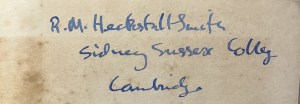 R. M. Heckstall-Smith
Sidney Sussex College
Cambridge